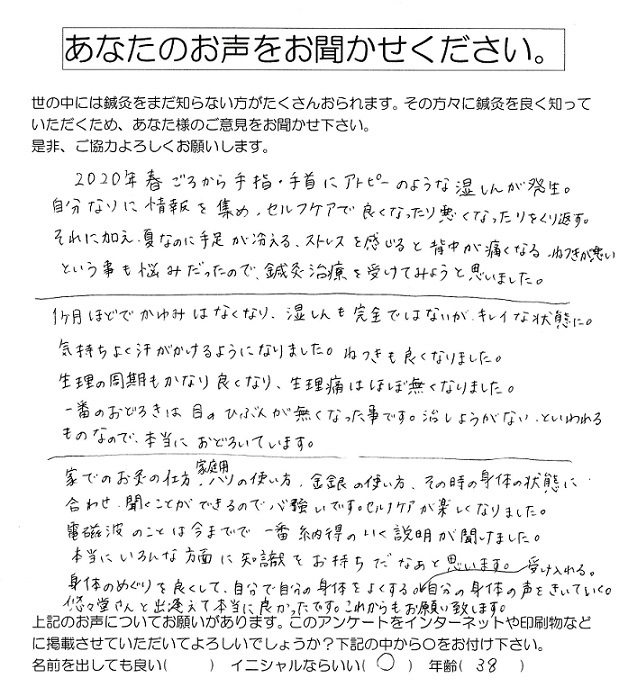 あなたのお声をお聞かせください。
世の中には鍼灸をまだ知らない方がたくさんおられます。その方々に鍼灸を良く知って
いただくため、あなた様のご意見をお聞かせ下さい。
是非、ご協力よろしくお願いします。
2020年春ごろから手指・手首にアトピーのような湿しんが発生。
自分なりに情報を集め、セルフケアで良くなったり悪くなったりをくり返す。
それに加え、夏なのに手足が冷える、ストレスを感じると背中が痛くなる、ねつきが悪い
という事も悩みだったので、鍼灸治療を受けてみようと思いました。
1ヶ月ほどでかゆみはなくなり、湿しんも完全ではないが、キレイな状態に。
気持ちよく汗がかけるようになりました。ねつきも良くなりました。
生理の周期もかなり良くなり、生理痛はほぼ無くなりました。
一番のおどろきは目のひぶんが無くなった事です。治しようがない、といわれる
ものなので、本当におどろいています。
家でのお灸の仕方、家庭用ハリの使い方、金銀の使い方、その時の身体の状態に
合わせ、聞くことができるので心強いです。セルフケアが楽しくなりました。
電磁波のことは今までで一番納得のいく説明が聞けました。
本当にいろんな方面に知識をお持ちだなぁと思います。受け入れる。
身体のめぐりを良くして、自分で自分の身体をよくする。自分の身体の声をきいていく。
悠々堂さんと出逢えて本当に良かったです。これからもお願い致します。
上記のお声についてお願いがあります。このアンケートをインターネットや印刷物など
に掲載させていただいてよろしいでしょうか?下記の中から○をお付け下さい。
名前を出しても良い( ) イニシャルならいい( ○ ) 年齢( 38 )